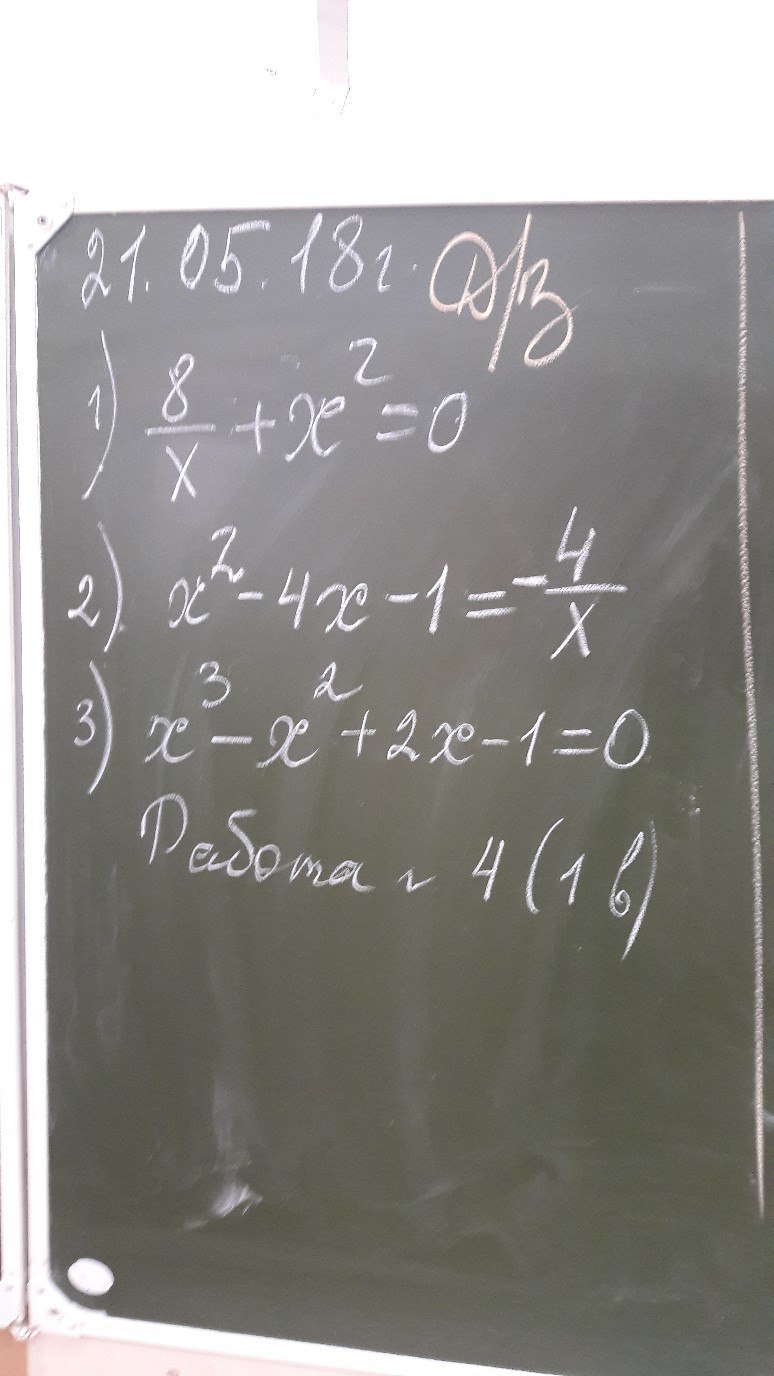 21.05.18г. Д/з
1) 8/x + x² = 0
2) x² - 4x - 1 = -4/x
3) x³ - x² + 2x - 1 = 0
Работа 4 (1 в)